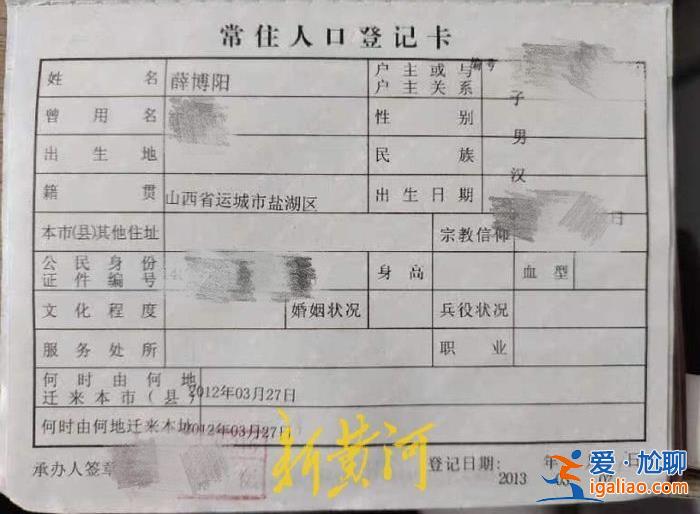 常住人口登记卡
编号
姓名 薛博阳 户主或与户主关系 子
曾用名 性别 男
出生地 民族 汉
籍贯 山西省运城市盐湖区 出生日期 日
本市(县)其他住址 宗教信仰
公民身份证件编号 身高 血型
文化程度 婚姻状况 兵役状况
服务处所 职业
何时由何地迁来本市(县) 2012年03月27日
何时由何地迁来本地 2012年03月27日
新黄河
承办人签章 登记日期: 2013 年 日
爱·尬聊
igaliao.com